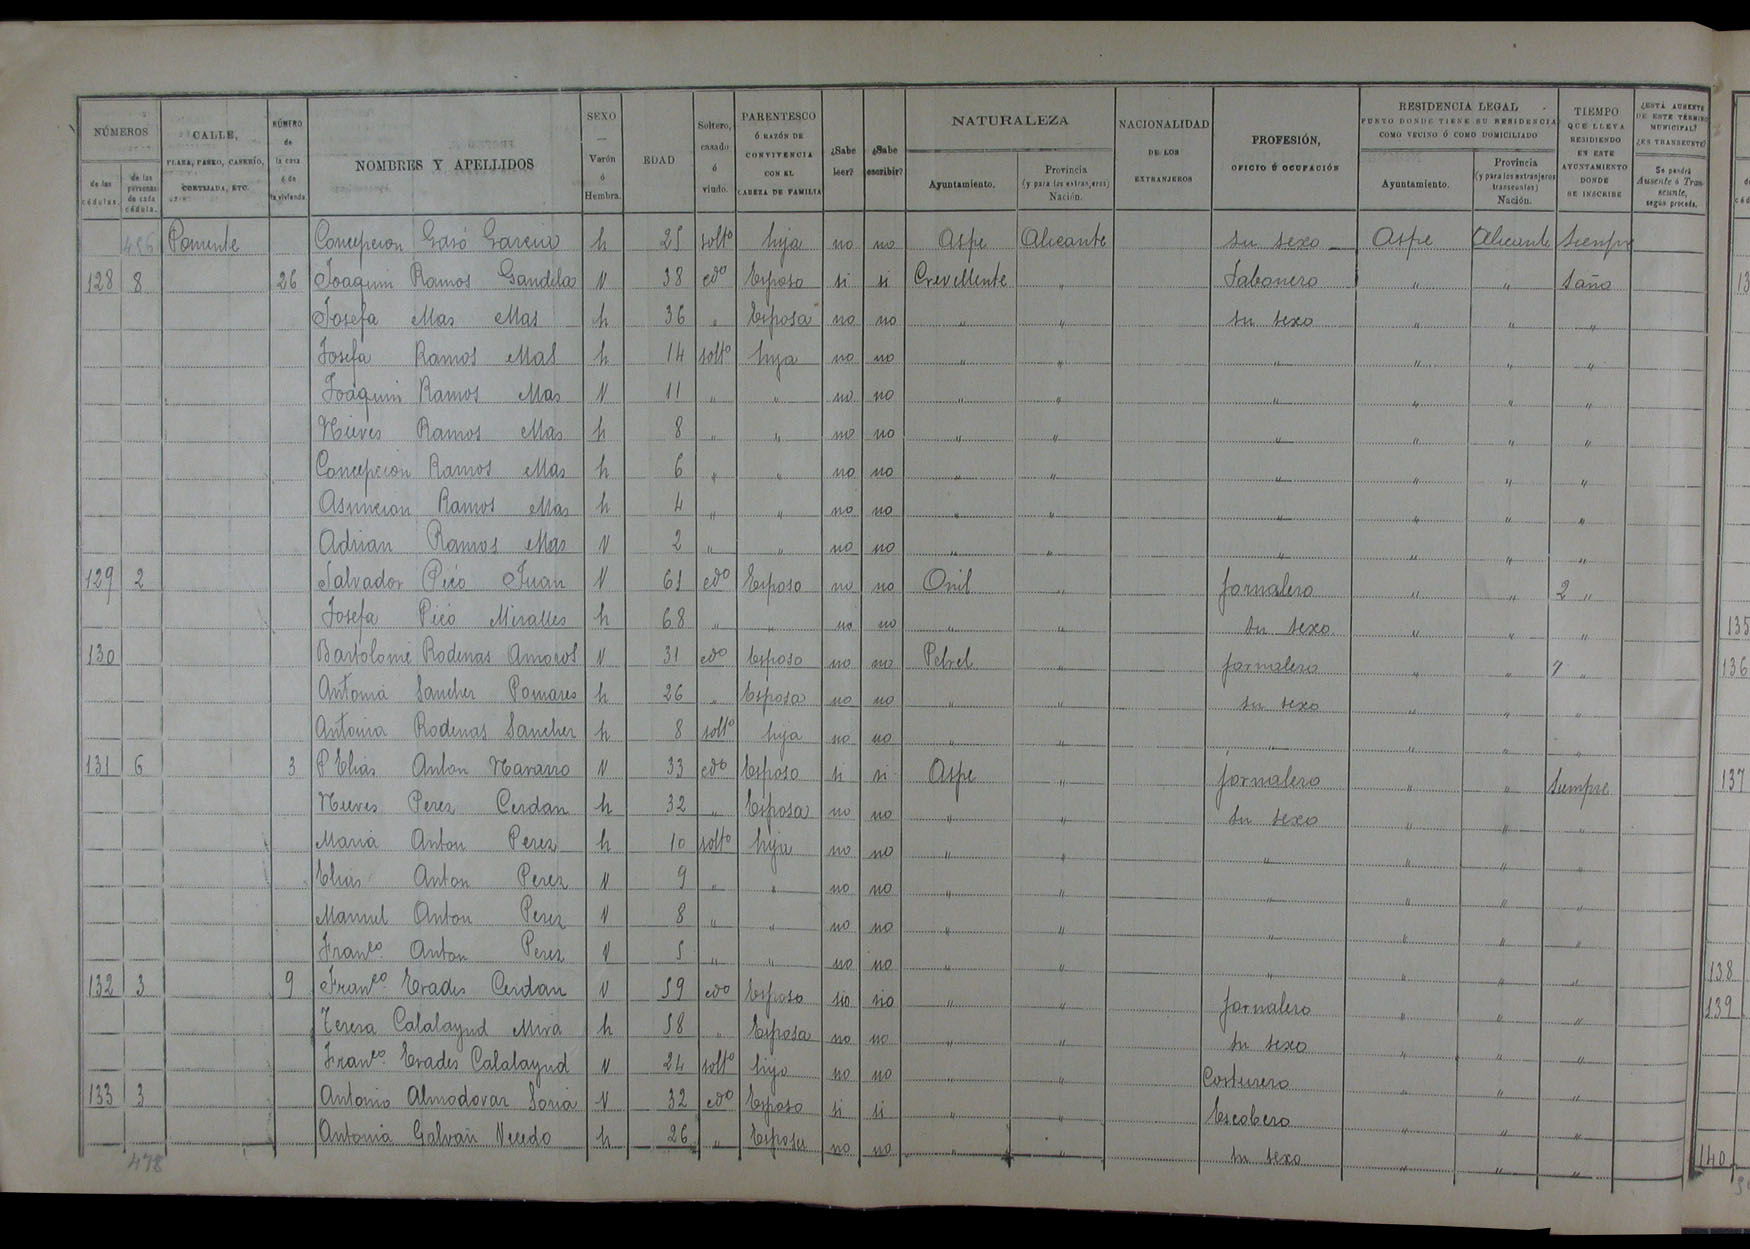 NÚMEROS
de las cédulas.
de las personas de cada cédula.
CALLE, PLAZA, PASEO, CASERÍO, CORTIJADA, ETC.
NÚMERO de la casa ó de la vivienda
NOMBRES Y APELLIDOS
SEXO — Varón ó Hembra.
EDAD
Soltero, casado ó viudo.
PARENTESCO Ó RAZÓN DE CONVIVENCIA CON EL CABEZA DE FAMILIA
¿Sabe leer?
¿Sabe escribir?
NATURALEZA
Ayuntamiento.
Provincia (y para los extranjeros) Nación.
NACIONALIDAD DE LOS EXTRANJEROS
PROFESIÓN, OFICIO Ó OCUPACIÓN
RESIDENCIA LEGAL
PUNTO DONDE TIENE SU RESIDENCIA COMO VECINO Ó COMO DOMICILIADO
Ayuntamiento.
Provincia (y para los extranjeros transeuntes) Nación.
TIEMPO QUE LLEVA RESIDIENDO EN ESTE AYUNTAMIENTO DONDE SE INSCRIBE
¿ESTÁ AUSENTE DE ESTE TÉRMINO MUNICIPAL? ¿ES TRANSEUNTE?
Se pondrá Ausente ó Transeunte, según proceda.
456 Poniente Concepcion Gasó Garcia h 25 solto hija no no Aspe Alicante su sexo Aspe Alicante Siempre
128 8 26 Joaquin Ramos Gandela V 38 cdo Esposo si si Crevillente " Jabonero " " 1 año
Josefa Mas Mas h 36 " Esposa no no " " su sexo " " "
Josefa Ramos Mas h 14 solto hija no no " " " " " "
Joaquin Ramos Mas V 11 " " no no " " " " " "
Nieves Ramos Mas h 8 " " no no " " " " " "
Concepcion Ramos Mas h 6 " " no no " " " " " "
Asuncion Ramos Mas h 4 " " no no " " " " " "
Adrian Ramos Mas V 2 " " no no " " " " " "
129 2 Salvador Picó Juan V 61 cdo Esposo no no Onil " Jornalero " " 2 "
Josefa Picó Miralles h 68 " " no no " " su sexo " " "
130 Bartolomé Rodenas Amoros V 31 cdo Esposo no no Petrel " Jornalero " " 7 "
Antonia Sanchez Pomares h 26 " Esposa no no " " su sexo " " "
Antonia Rodenas Sanchez h 8 solto hija no no " " " " " "
131 6 3 Elias Anton Navarro V 33 cdo Esposo si si Aspe " Jornalero " " Siempre
Nieves Perez Cerdan h 32 " Esposa no no " " su sexo " " "
Maria Anton Perez h 10 solto hija no no " " " " " "
Elias Anton Perez V 9 " " no no " " " " " "
Manuel Anton Perez V 8 " " no no " " " " " "
Franco Anton Perez V 5 " " no no " " " " " "
132 3 9 Franco Erades Cerdan V 59 cdo Esposo sio sio " " Jornalero " " "
Teresa Calalayud Mira h 58 " Esposa no no " " su sexo " " "
Franco Erades Calalayud V 24 solto hijo no no " " Costurero " " "
133 3 Antonio Almodovar Soria V 32 cdo Esposo si si " " Escobero " " "
Antonia Galvañ h 26 " Esposa no no " " su sexo " " "
478
13
135
136
137
138
139
140